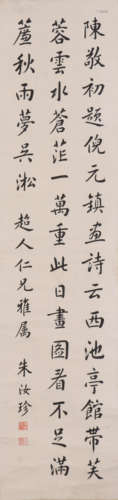 陳敬初題倪元鎮畫詩云西池亭館帶芙
蓉雲水蒼茫一萬重此日畫圖看不足滿
簾秋雨夢吳淞
超人仁兄雅屬
朱汝珍